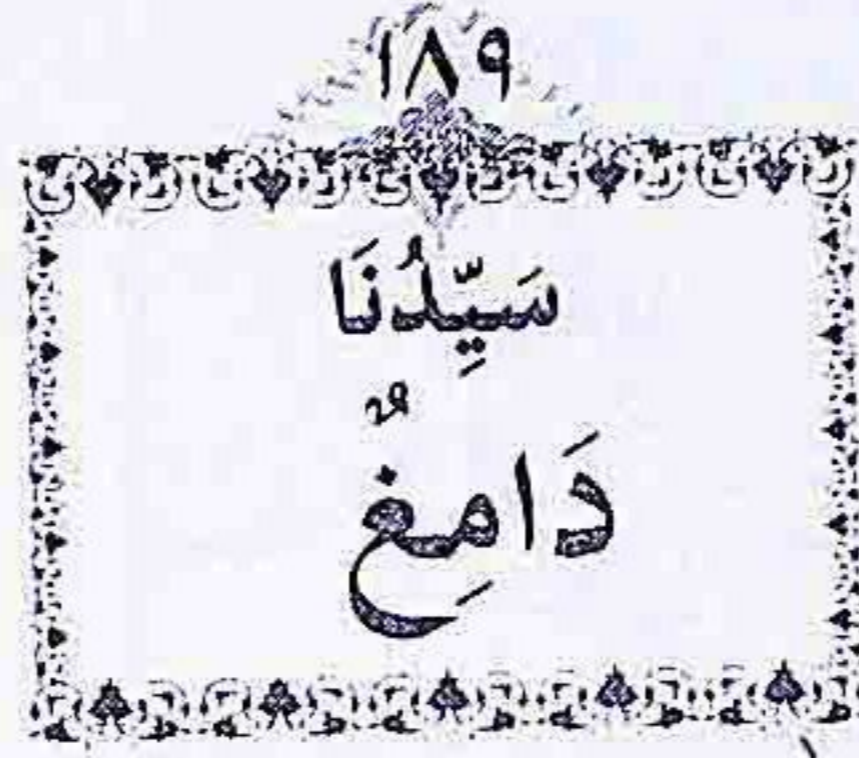 ١٨٩
سَيِّدُنَا
دَامِغٌ